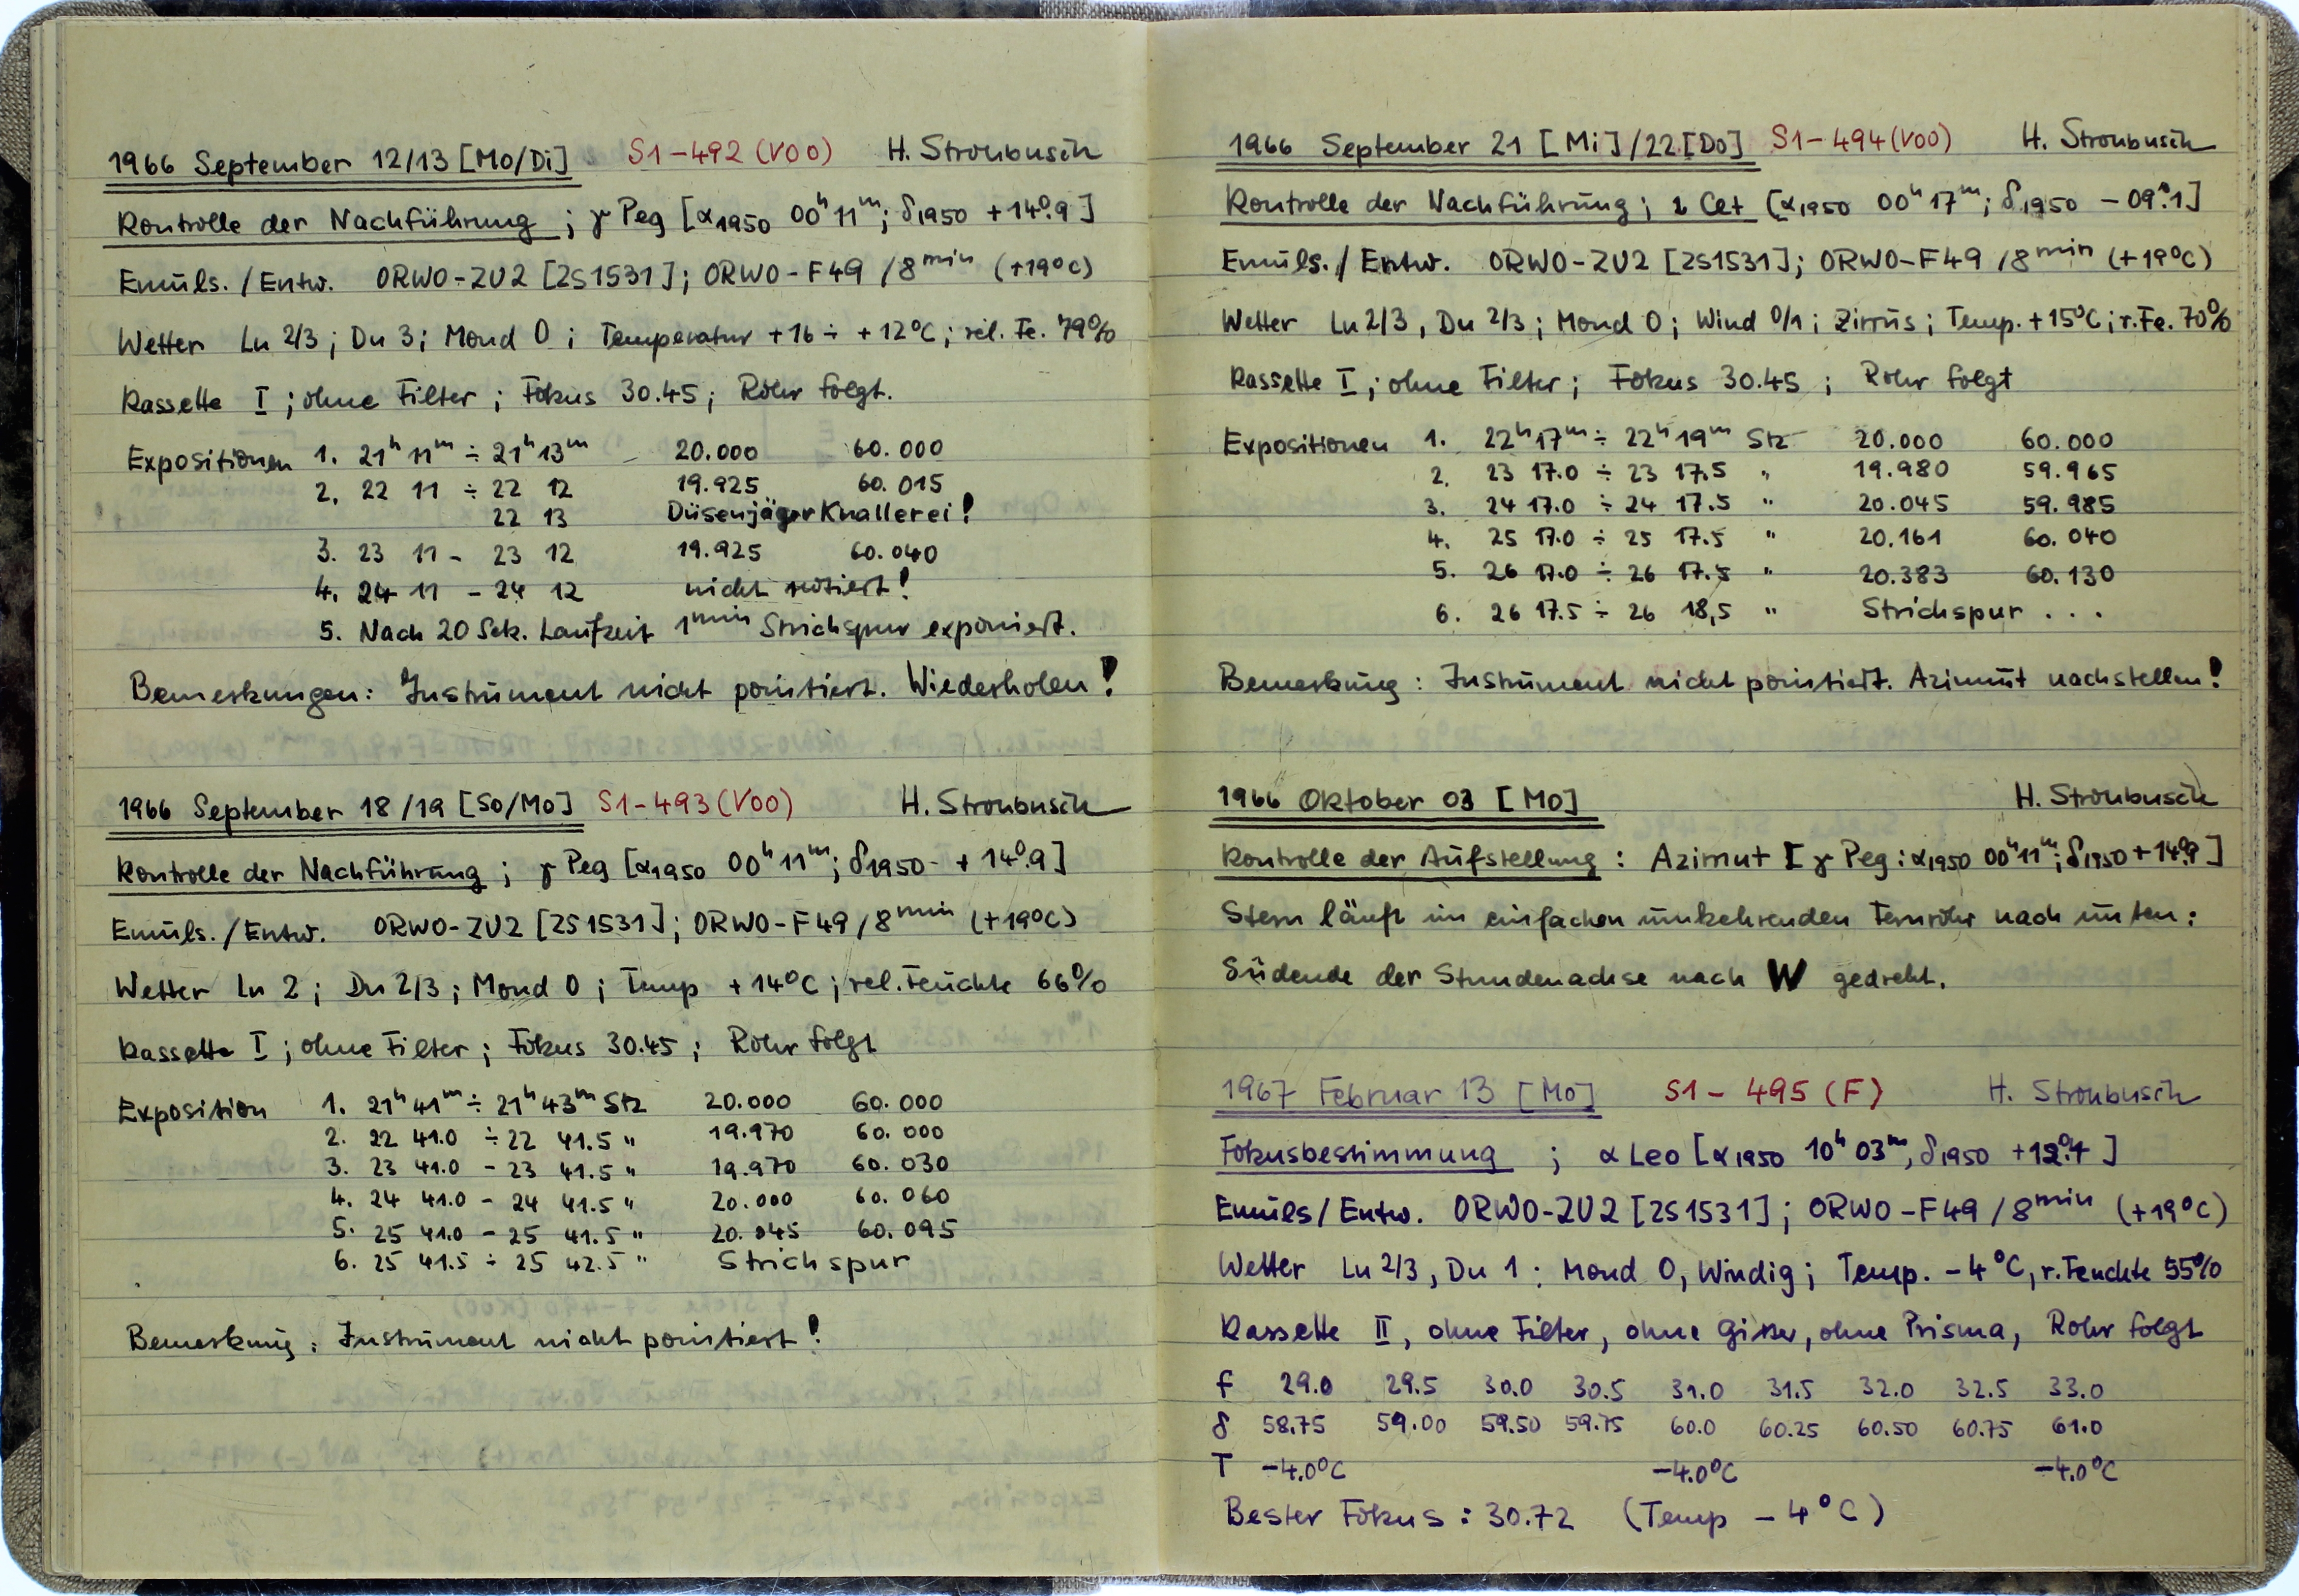 1966 September 12/13 [Mo/Di] S1-492 (V00) H. Stroubusch
Kontrolle der Nachführung ; γ Peg [α1950 00h 11m; δ1950 +14°.9]
Emuls./Entw. ORWO-ZU2 [2S1531]; ORWO-F49 /8min (+19°C)
Wetter Lu 2/3; Du 3; Mond 0; Temperatur +16 ÷ +12°C; rel. Fe. 79%
Kassette I; ohne Filter; Fokus 30.45; Rohr folgt.
Expositionen 1. 21h 11m ÷ 21h 13m – 20.000 60.000
2. 22 11 ÷ 22 12 19.925 60.015
22 13 Düsenjäger Knallerei!
3. 23 11 - 23 12 19.925 60.040
4. 24 11 - 24 12 nicht notiert!
5. Nach 20 Sek. Laufzeit 1min Strichspur exponiert.
Bemerkungen: Instrument nicht pointiert. Wiederholen!
1966 September 18/19 [So/Mo] S1-493 (V00) H. Stroubusch
Kontrolle der Nachführung ; γ Peg [α1950 00h 11m; δ1950 +14°.9]
Emuls./Entw. ORWO-ZU2 [2S1531]; ORWO-F49/8min (+19°C)
Wetter Lu 2; Du 2/3; Mond 0; Temp +14°C; rel. Feuchte 66%
Kassette I; ohne Filter; Fokus 30.45; Rohr folgt
Exposition 1. 21h 41m ÷ 21h 43m Stz 20.000 60.000
2. 22 41.0 ÷ 22 41.5 " 19.970 60.000
3. 23 41.0 - 23 41.5 " 19.970 60.030
4. 24 41.0 - 24 41.5 " 20.000 60.060
5. 25 41.0 - 25 41.5 " 20.045 60.095
6. 25 41.5 ÷ 25 42.5 " Strichspur
Bemerkung: Instrument nicht pointiert!
1966 September 21 [Mi]/22[Do] S1-494 (V00) H. Stroubusch
Kontrolle der Nachführung; ι Cet [α1950 00h 17m; δ1950 -09°.1]
Emuls./Entw. ORWO-ZU2 [2S1531]; ORWO-F49 /8min (+19°C)
Wetter Lu 2/3, Du 2/3; Mond 0; Wind 0/1; Zirrus; Temp. +15°C; r.Fe. 70%
Kassette I; ohne Filter; Fokus 30.45; Rohr folgt
Expositionen 1. 22h 17m ÷ 22h 19m Stz 20.000 60.000
2. 23 17.0 ÷ 23 17.5 " 19.980 59.965
3. 24 17.0 ÷ 24 17.5 " 20.045 59.985
4. 25 17.0 ÷ 25 17.5 " 20.161 60.040
5. 26 17.0 ÷ 26 17.5 " 20.383 60.130
6. 26 17.5 ÷ 26 18,5 " Strichspur ...
Bemerkung: Instrument nicht pointiert. Azimut nachstellen!
1966 Oktober 03 [Mo] H. Stroubusch
Kontrolle der Aufstellung: Azimut [γ Peg: α1950 00h 11m; δ1950 +14°.9]
Stern läuft im einfachen umkehrenden Fernrohr nach unten:
Südende der Stundenachse nach W gedreht.
1967 Februar 13 [Mo] S1-495 (F) H. Stroubusch
Fokusbestimmung ; α Leo [α1950 10h 03m, δ1950 +12°.4]
Emuls/Entw. ORWO-ZU2 [2S1531]; ORWO-F49 /8min (+19°C)
Wetter Lu 2/3, Du 1; Mond 0, Windig; Temp. -4°C, r. Feuchte 55%
Kassette II, ohne Filter, ohne Gitter, ohne Prisma, Rohr folgt
f 29.0 29.5 30.0 30.5 31.0 31.5 32.0 32.5 33.0
δ 58.75 59.00 59.50 59.75 60.0 60.25 60.50 60.75 61.0
T -4.0°C -4.0°C -4.0°C
Bester Fokus: 30.72 (Temp -4°C)